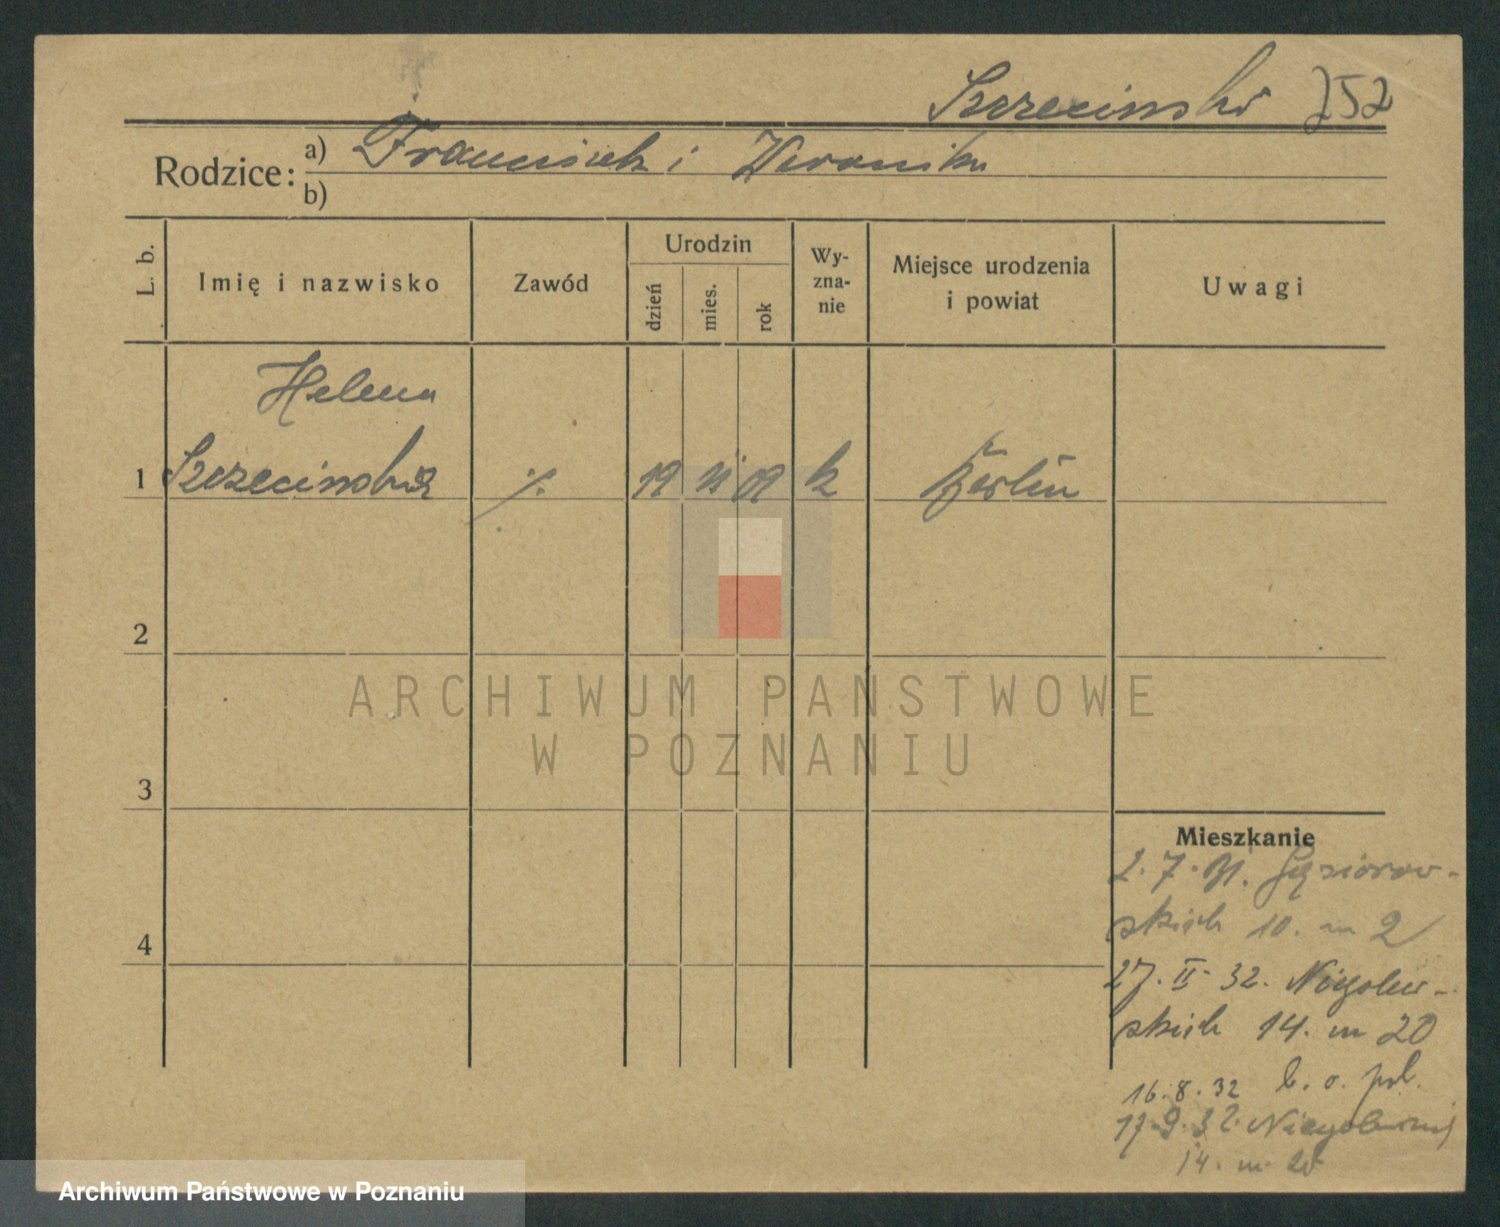 Szczecinski 252
Rodzice: a) Franciszek i Weronika
b)
L. b.
Imię i nazwisko
Zawód
Urodzin
dzień
mies.
rok
Wy-
zna-
nie
Miejsce urodzenia
i powiat
Uwagi
Helena
1 Szczecinska ./. 19 09 k Berlin
2
3
4
ARCHIWUM PANSTWOWE
W POZNANIU
Mieszkanie
2.7.31. Gąsiorow-
skich 10. m 2
27. II. 32. Niegolew-
skich 14. m 20
16.8.32 b. o. pol.
17.9.32. Niegolewskich
14. m. 20
Archiwum Państwowe w Poznaniu